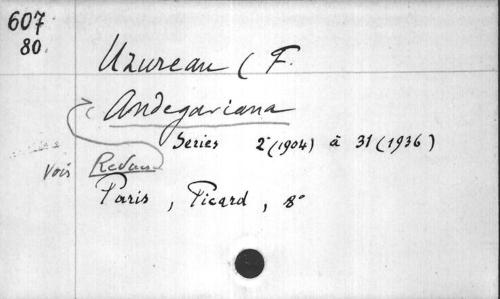 607
80.
Uzureau (F.
Andegaviana
Series 2e (1904) à 31 (1936)
Voir
Paris, Picard, 8°